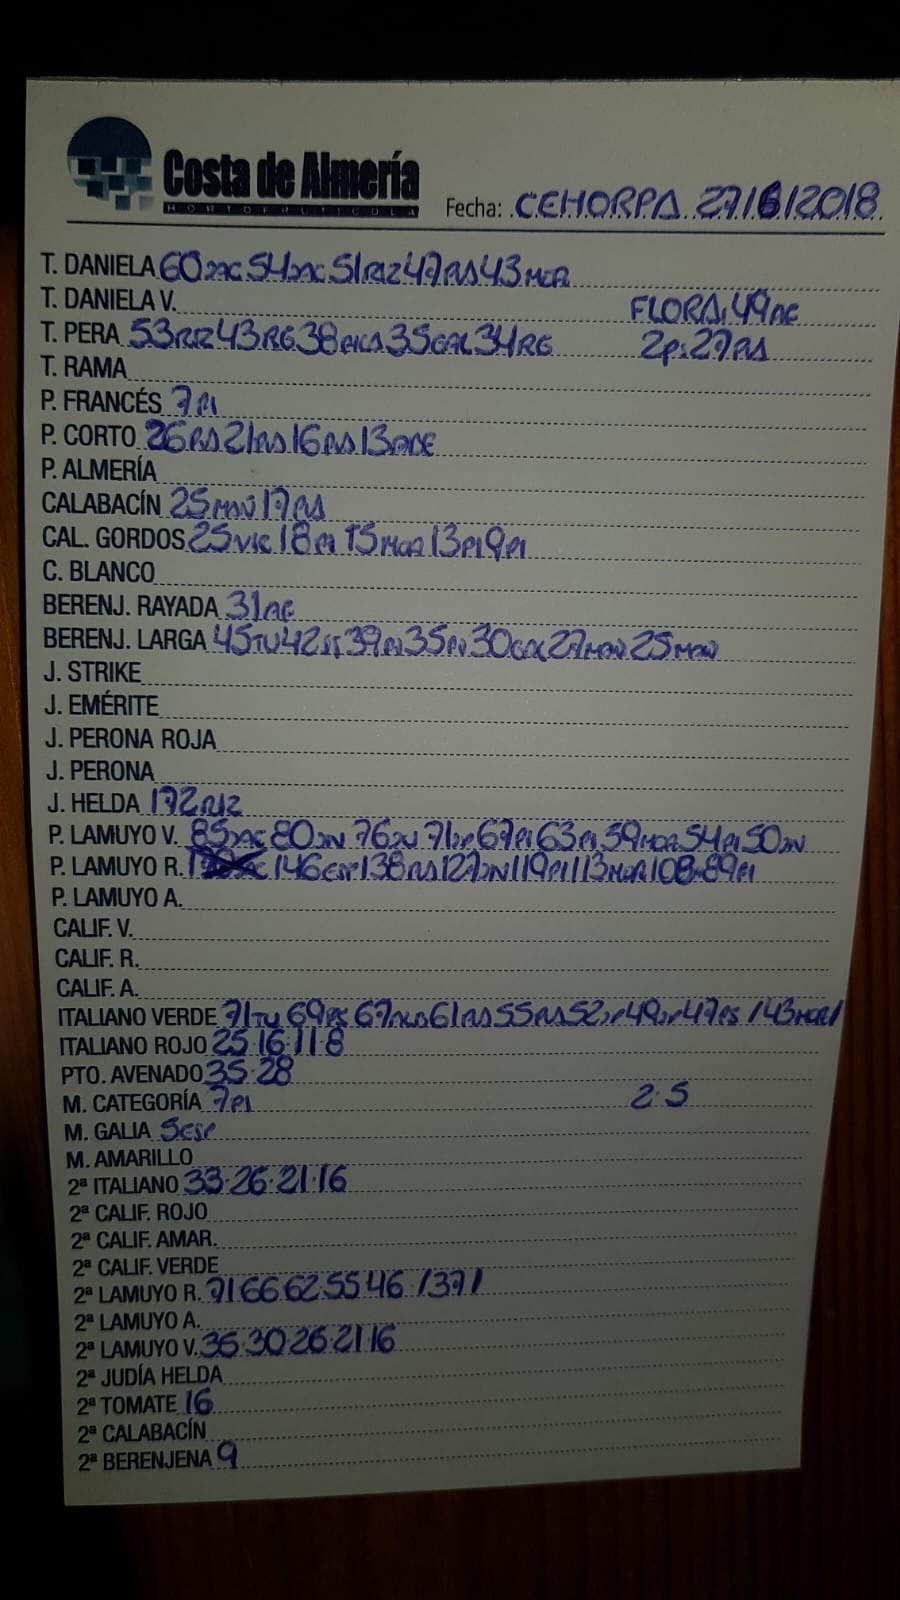 Costa de Almería
HORTOFRUTÍCULA
Fecha: CEHORPA 27/6/2018
T. DANIELA 60 54 51RIZ 47RS 43MCR
T. DANIELA V. FLORA: 49AE
T. PERA 53RIZ 43RG 38 35GAL 34RG 2ps 27RS
T. RAMA
P. FRANCÉS 7PI
P. CORTO 26RS 21RS 16RS 13
P. ALMERÍA
CALABACÍN 25 17RS
CAL. GORDOS 25VIC 18PI 15MCR 13PI 9PI
C. BLANCO
BERENJ. RAYADA 31AE
BERENJ. LARGA 45TU 42 39 35 30 27 25
J. STRIKE
J. EMÉRITE
J. PERONA ROJA
J. PERONA
J. HELDA 172RIZ
P. LAMUYO V. 85 80 76 71 67PI 63PI 59MCR 54PI 50
P. LAMUYO R. 146ESP 138RS 127 119PI 113MCR 108-89PI
P. LAMUYO A.
CALIF. V.
CALIF. R.
CALIF. A.
ITALIANO VERDE 71TU 69RS 67 61RS 55RS 52 49 47RS /43MCR/
ITALIANO ROJO 25·16·11·8
PTO. AVENADO 35·28
M. CATEGORÍA 7PI 2·5
M. GALIA 5ESP
M. AMARILLO
2ª ITALIANO 33·26·21·16
2ª CALIF. ROJO
2ª CALIF. AMAR.
2ª CALIF. VERDE
2ª LAMUYO R. 71 66 62 55 46 /37/
2ª LAMUYO A.
2ª LAMUYO V. 36·30·26·21·16
2ª JUDÍA HELDA
2ª TOMATE 16
2ª CALABACÍN
2ª BERENJENA 9